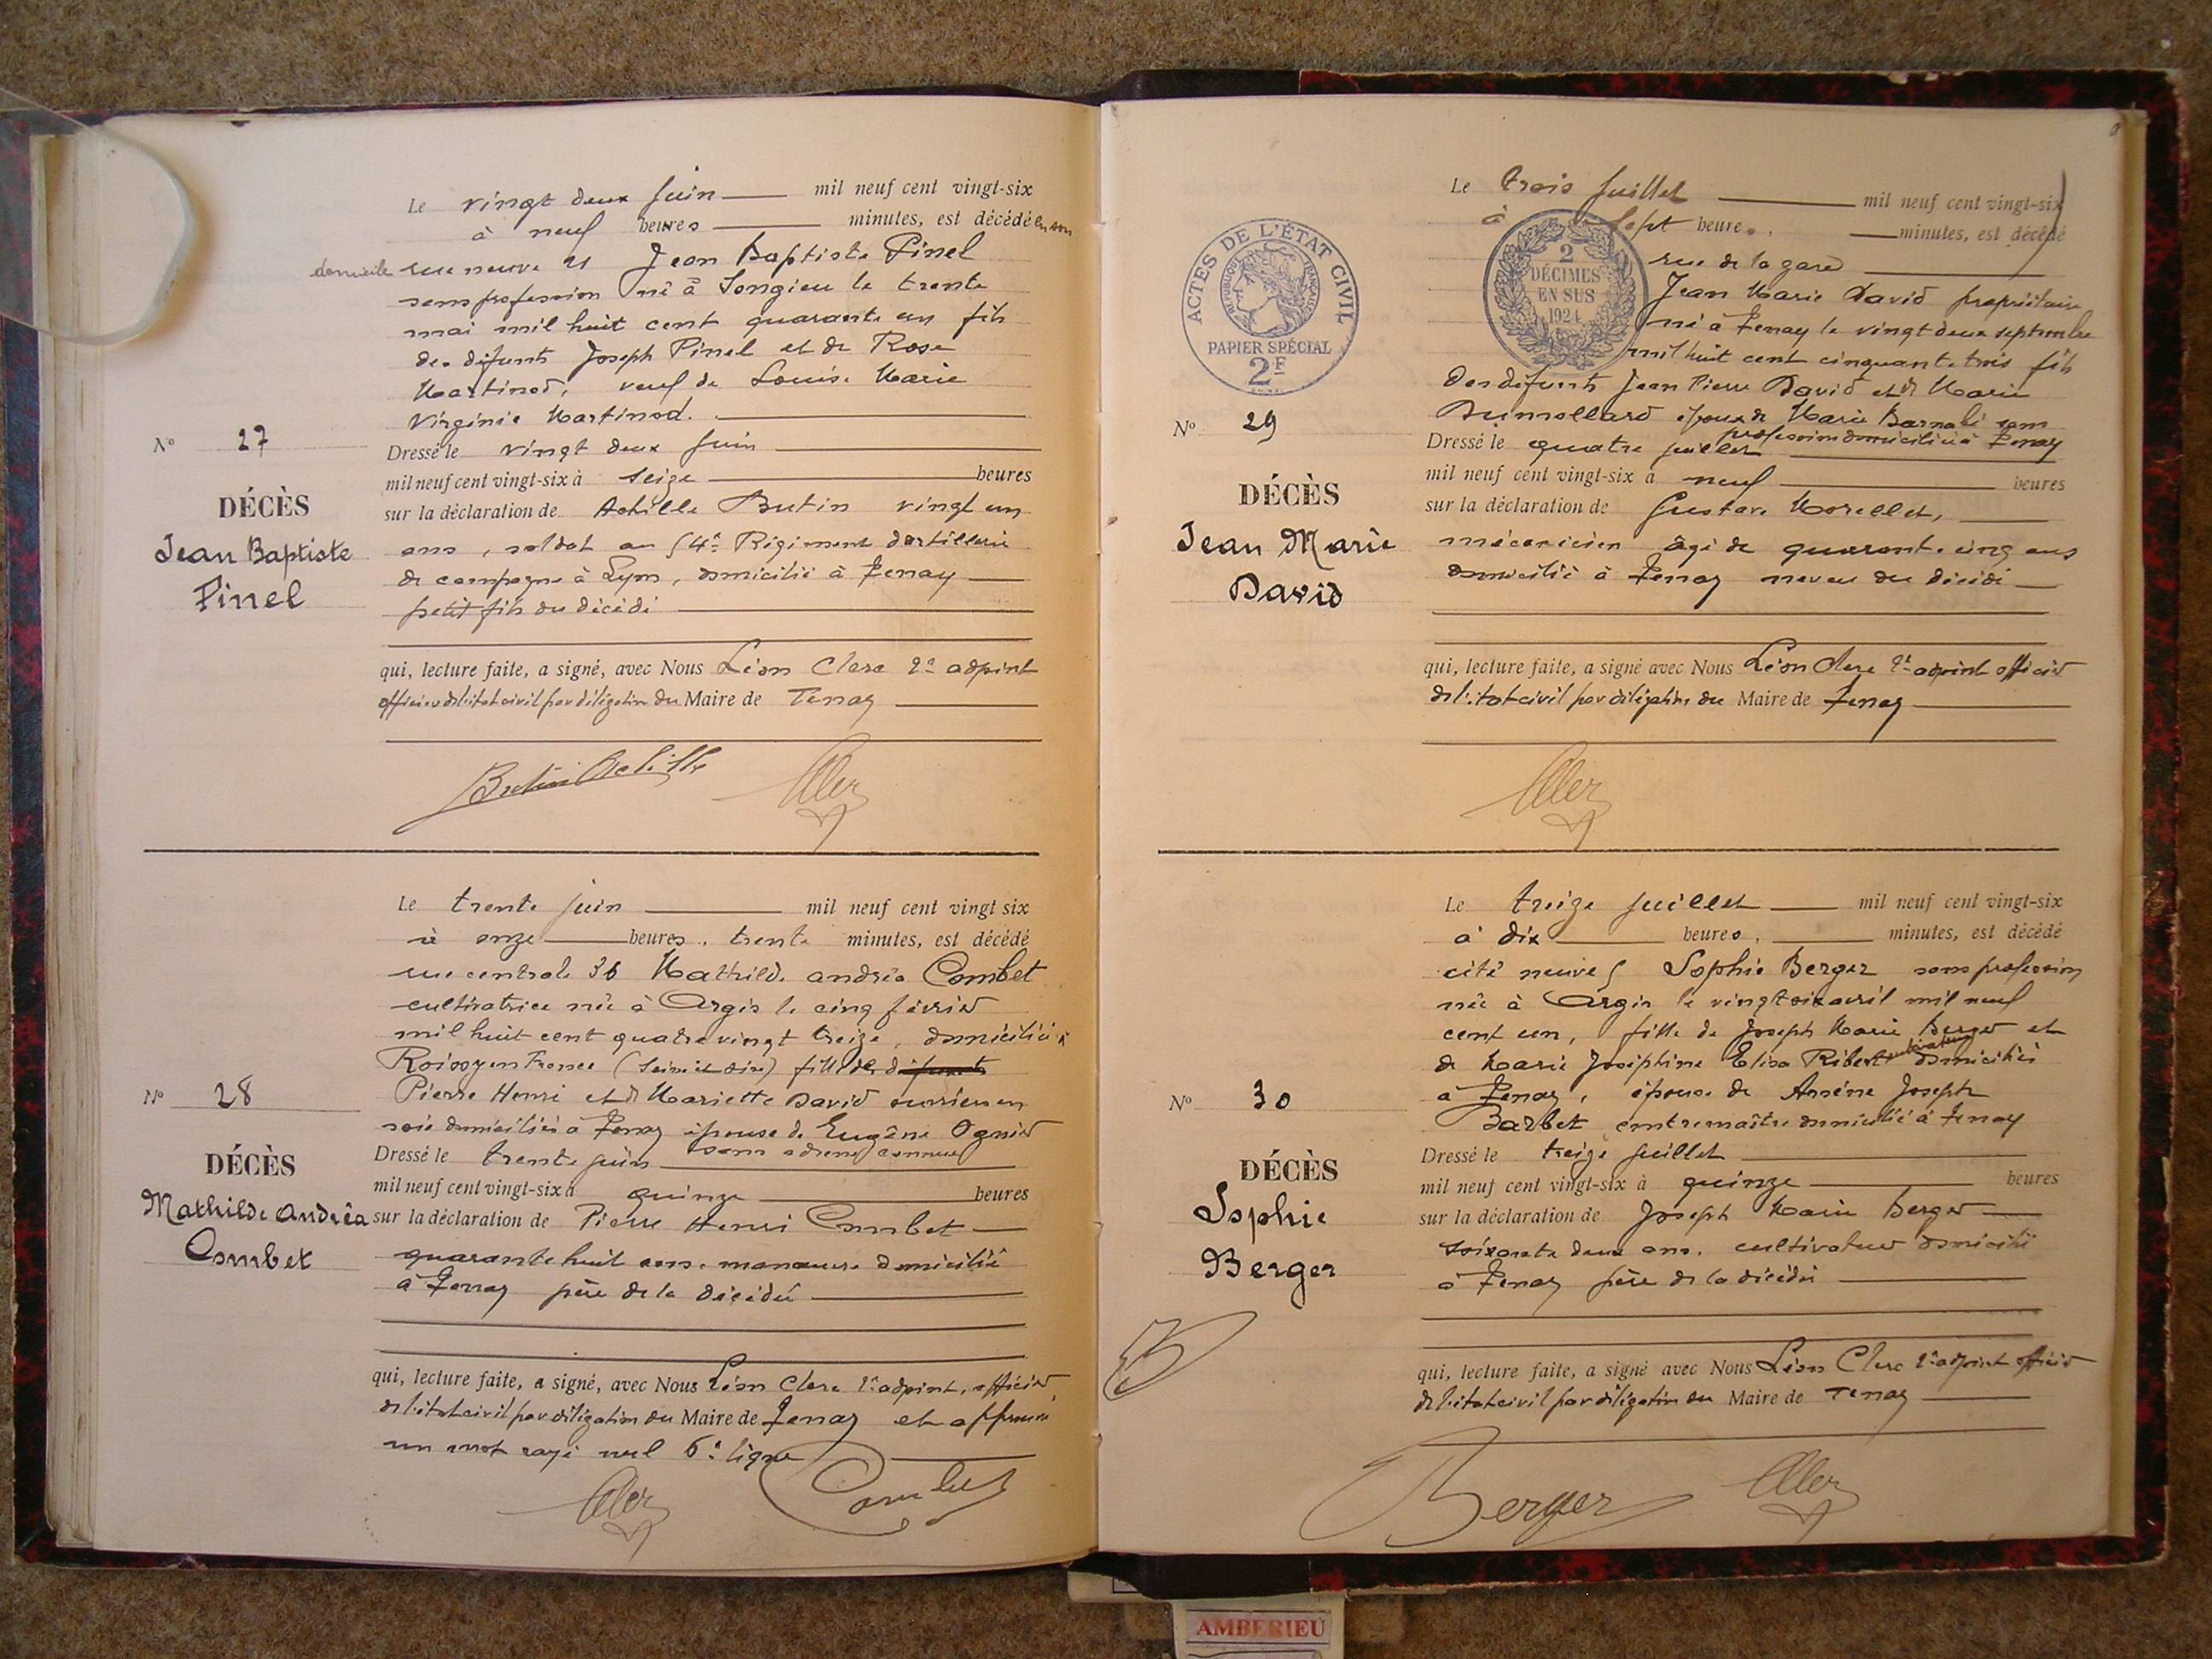 Le vingt deux juin mil neuf cent vingt-six
à neuf heures minutes, est décédé en son
domicile rue neuve 21 Jean Baptiste Pinel
sans profession né à Songieu le trente
mai mil huit cent quarante un fils
des défunts Joseph Pinel et de Rose
Martinod, veuf de Louise Marie
Virginie Martinod.
N° 27
DÉCÈS
Jean Baptiste
Pinel
Dressé le vingt deux juin
mil neuf cent vingt-six à seize heures
sur la déclaration de Achille Butin vingt un
ans, soldat au 54e Régiment d'artillerie
de campagne à Lyon, domicilié à Tenay
petit fils du décédé
qui, lecture faite, a signé, avec Nous Léon Clerc 2e adjoint
officier de l'état civil par délégation du Maire de Tenay
Butin Achille
Le trente juin mil neuf cent vingt six
à onze heures, trente minutes, est décédé
rue centrale 36 Mathilde andréa Combet
cultivatrice née à Argis le cinq février
mil huit cent quatre vingt treize, domiciliée à
Roissy en France (Seine et Oise) fille de défunts
Pierre Henri et de Mariette David ouvrier en
soie domiciliés à Tenay épouse de Eugène Ognier
sans adresse connue
N° 28
DÉCÈS
Mathilde Andréa
Combet
Dressé le trente juin
mil neuf cent vingt-six à quinze heures
sur la déclaration de Pierre Henri Combet
quarante huit ans, manoeuvre domicilié
à Tenay père de la décédée
qui, lecture faite, a signé, avec Nous Léon Clerc 2e adjoint, officier
de l'état civil par délégation du Maire de Tenay et approuvé
un mot rayé nul 6e ligne
Combet
ACTES DE L'ÉTAT CIVIL
RÉPUBLIQUE FRANÇAISE
PAPIER SPÉCIAL
2F
2
DÉCIMES
EN SUS
1924
Le trois juillet mil neuf cent vingt-six
à sept heures, minutes, est décédé
rue de la gare
Jean Marie David propriétaire
né à Tenay le vingt deux septembre
mil huit cent cinquante trois fils
des défunts Jean Pierre David et de Marie
Dumollard époux de Marie Barnabé sans
profession domiciliée à Tenay
N° 29
DÉCÈS
Jean Marie
David
Dressé le quatre juillet
mil neuf cent vingt-six à neuf heures
sur la déclaration de Gustave Morellet,
mécanicien âgé de quarante cinq ans
domicilié à Tenay neveu du décédé
qui, lecture faite, a signé avec Nous Léon Clerc 2e adjoint officier
de l'état civil par délégation du Maire de Tenay
Le treize juillet mil neuf cent vingt-six
à dix heures, minutes, est décédé
cité neuve 5 Sophie Berger sans profession
née à Argis le vingt six avril mil neuf
cent un, fille de Joseph Marie Berger et
de Marie Joséphine Elisa Ribert cultivateurs domiciliés
à Tenay, épouse de Arsène Joseph
Barbet contremaître domicilié à Tenay
N° 30
DÉCÈS
Sophie
Berger
Dressé le treize juillet
mil neuf cent vingt-six à quinze heures
sur la déclaration de Joseph Marie Berger
soixante deux ans. cultivateur domicilié
à Tenay père de la décédée
qui, lecture faite, a signé avec Nous Léon Clerc 2e adjoint officier
de l'état civil par délégation du Maire de Tenay
Berger
AMBERIEU